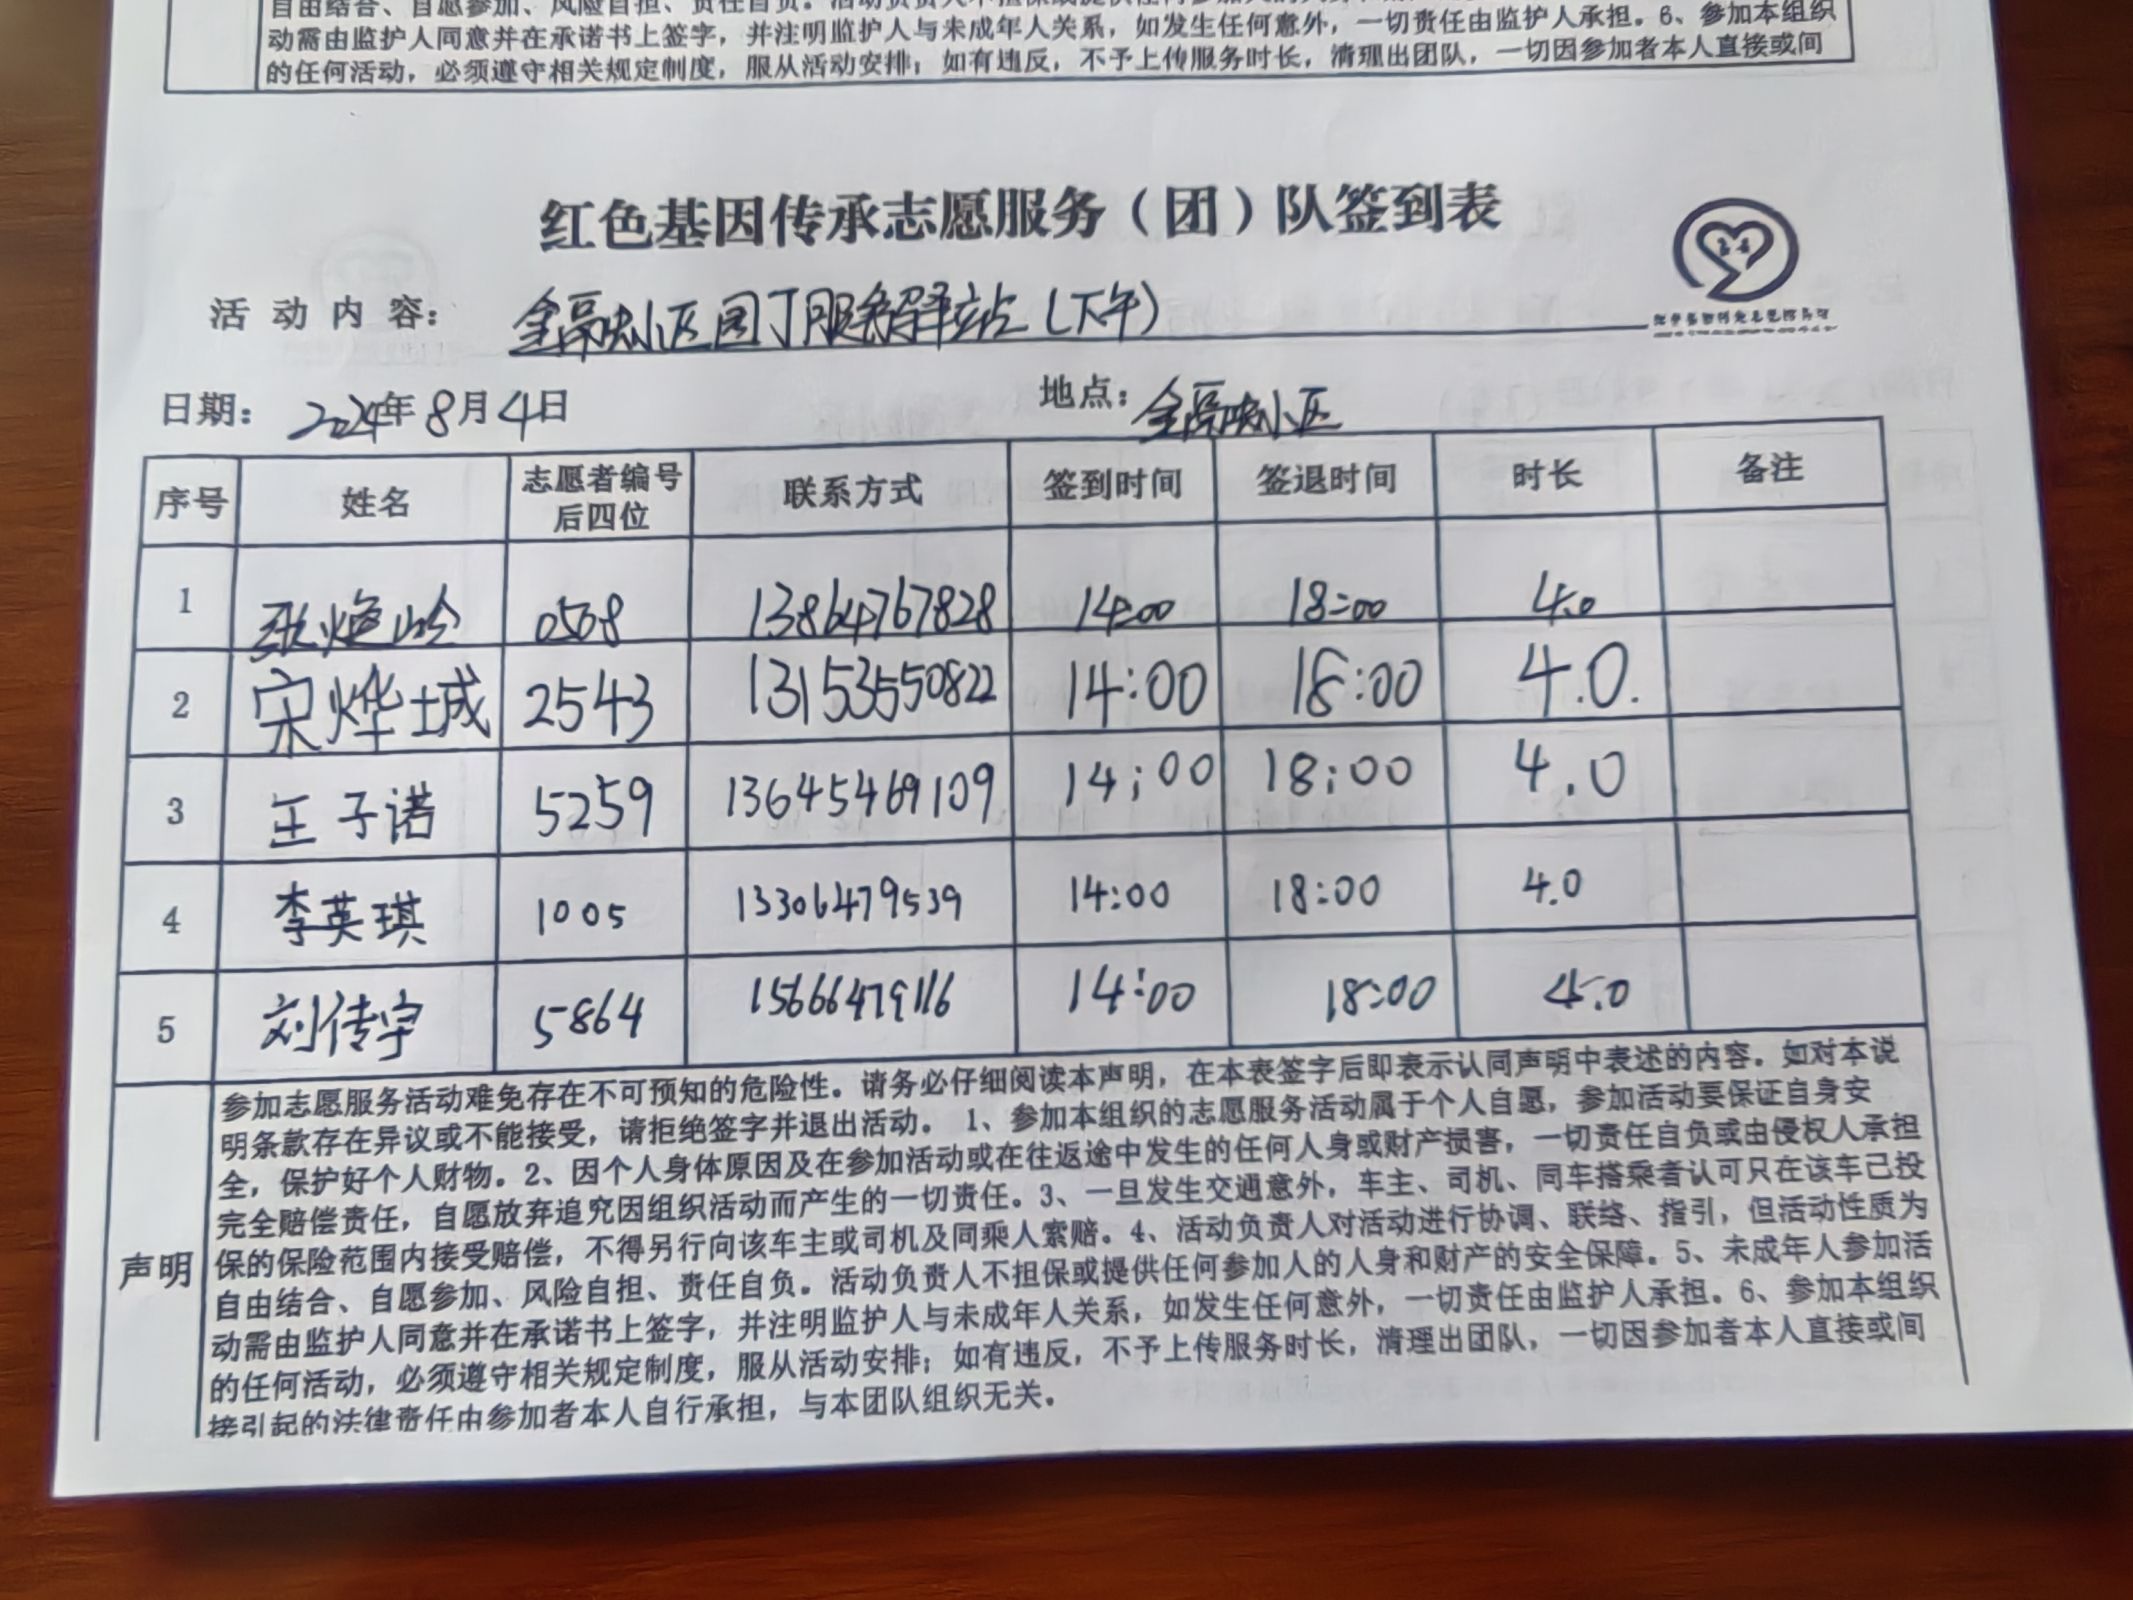 自由结合、自愿参加、风险自担、责任自负。活动负责人不担保或提供任何参加人的人身和财
动需由监护人同意并在承诺书上签字，并注明监护人与未成年人关系，如发生任何意外，一切责任由监护人承担。6、参加本组织
的任何活动，必须遵守相关规定制度，服从活动安排；如有违反，不予上传服务时长，清理出团队，一切因参加者本人直接或间
红色基因传承志愿服务（团）队签到表
活动内容： 小区园丁服务驿站（下午）
日期： 2024年8月4日 地点： 小区
序号 姓名 志愿者编号后四位 联系方式 签到时间 签退时间 时长 备注
1 张 0508 13864767828 14:00 18:00 4.0
2 宋烨城 2543 13153550822 14:00 18:00 4.0.
3 王子诺 5259 13645469109 14:00 18:00 4.0
4 李英琪 1005 13306479539 14:00 18:00 4.0
5 刘传宇 5864 15666479116 14:00 18:00 4.0
声明
参加志愿服务活动难免存在不可预知的危险性。请务必仔细阅读本声明，在本表签字后即表示认同声明中表述的内容。如对本说
明条款存在异议或不能接受，请拒绝签字并退出活动。 1、参加本组织的志愿服务活动属于个人自愿，参加活动要保证自身安
全，保护好个人财物。2、因个人身体原因及在参加活动或在往返途中发生的任何人身或财产损害，一切责任自负或由侵权人承担
完全赔偿责任，自愿放弃追究因组织活动而产生的一切责任。3、一旦发生交通意外，车主、司机、同车搭乘者认可只在该车已投
保的保险范围内接受赔偿，不得另行向该车主或司机及同乘人索赔。4、活动负责人对活动进行协调、联络、指引，但活动性质为
自由结合、自愿参加、风险自担、责任自负。活动负责人不担保或提供任何参加人的人身和财产的安全保障。5、未成年人参加活
动需由监护人同意并在承诺书上签字，并注明监护人与未成年人关系，如发生任何意外，一切责任由监护人承担。6、参加本组织
的任何活动，必须遵守相关规定制度，服从活动安排；如有违反，不予上传服务时长，清理出团队，一切因参加者本人直接或间
接引起的法律责任由参加者本人自行承担，与本团队组织无关。